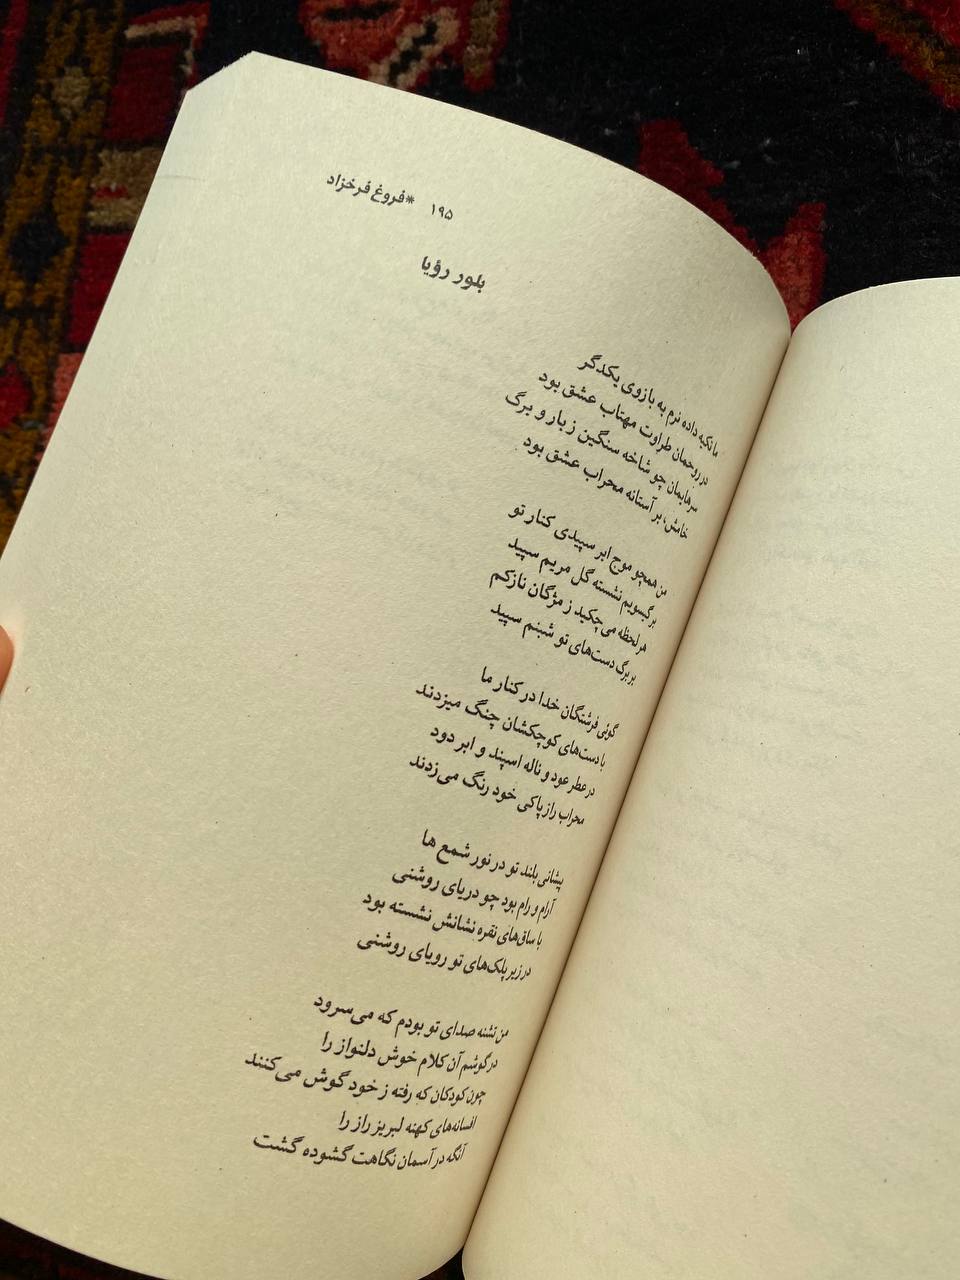 ۱۹۵ *فروغ فرخزاد
بلور رؤیا
ما تکیه داده نرم به بازوی یکدگر
در روحمان طراوت مهتاب عشق بود
سرهایمان چو شاخه سنگین ز بار و برگ
خامش، بر آستانه محراب عشق بود
من همچو موج ابر سپیدی کنار تو
بر گیسویم نشسته گل مریم سپید
هر لحظه می‌چکید ز مژگان نازکم
بر برگ دست‌های تو شبنم سپید
گوئی فرشتگان خدا در کنار ما
با دست‌های کوچکشان چنگ میزدند
در عطر عود و ناله اسپند و ابر دود
محراب را ز پاکی خود رنگ می‌زدند
پیشانی بلند تو در نور شمع ها
آرام و رام بود چو دریای روشنی
با ساق‌های نقره نشانش نشسته بود
در زیر پلک‌های تو رویای روشنی
من تشنه صدای تو بودم که می‌سرود
در گوشم آن کلام خوش دلنواز را
چون کودکان که رفته ز خود گوش می‌کنند
افسانه‌های کهنه لبریز راز را
آنگه در آسمان نگاهت گشوده گشت